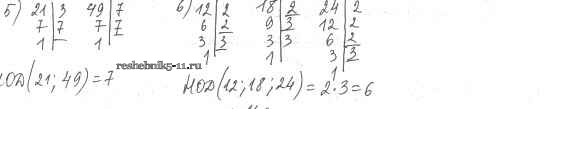 5) 21 | 3 49 | 7 6) 12 | 2 18 | 2 24 | 2
7 | 7 7 | 7 6 | 2 9 | 3 12 | 2
1 | 1 | 3 | 3 3 | 3 6 | 2
1 | 1 | 3 | 3
1 |
reshebnik5-11.ru
НОД(21; 49) = 7
НОД(12; 18; 24) = 2·3 = 6